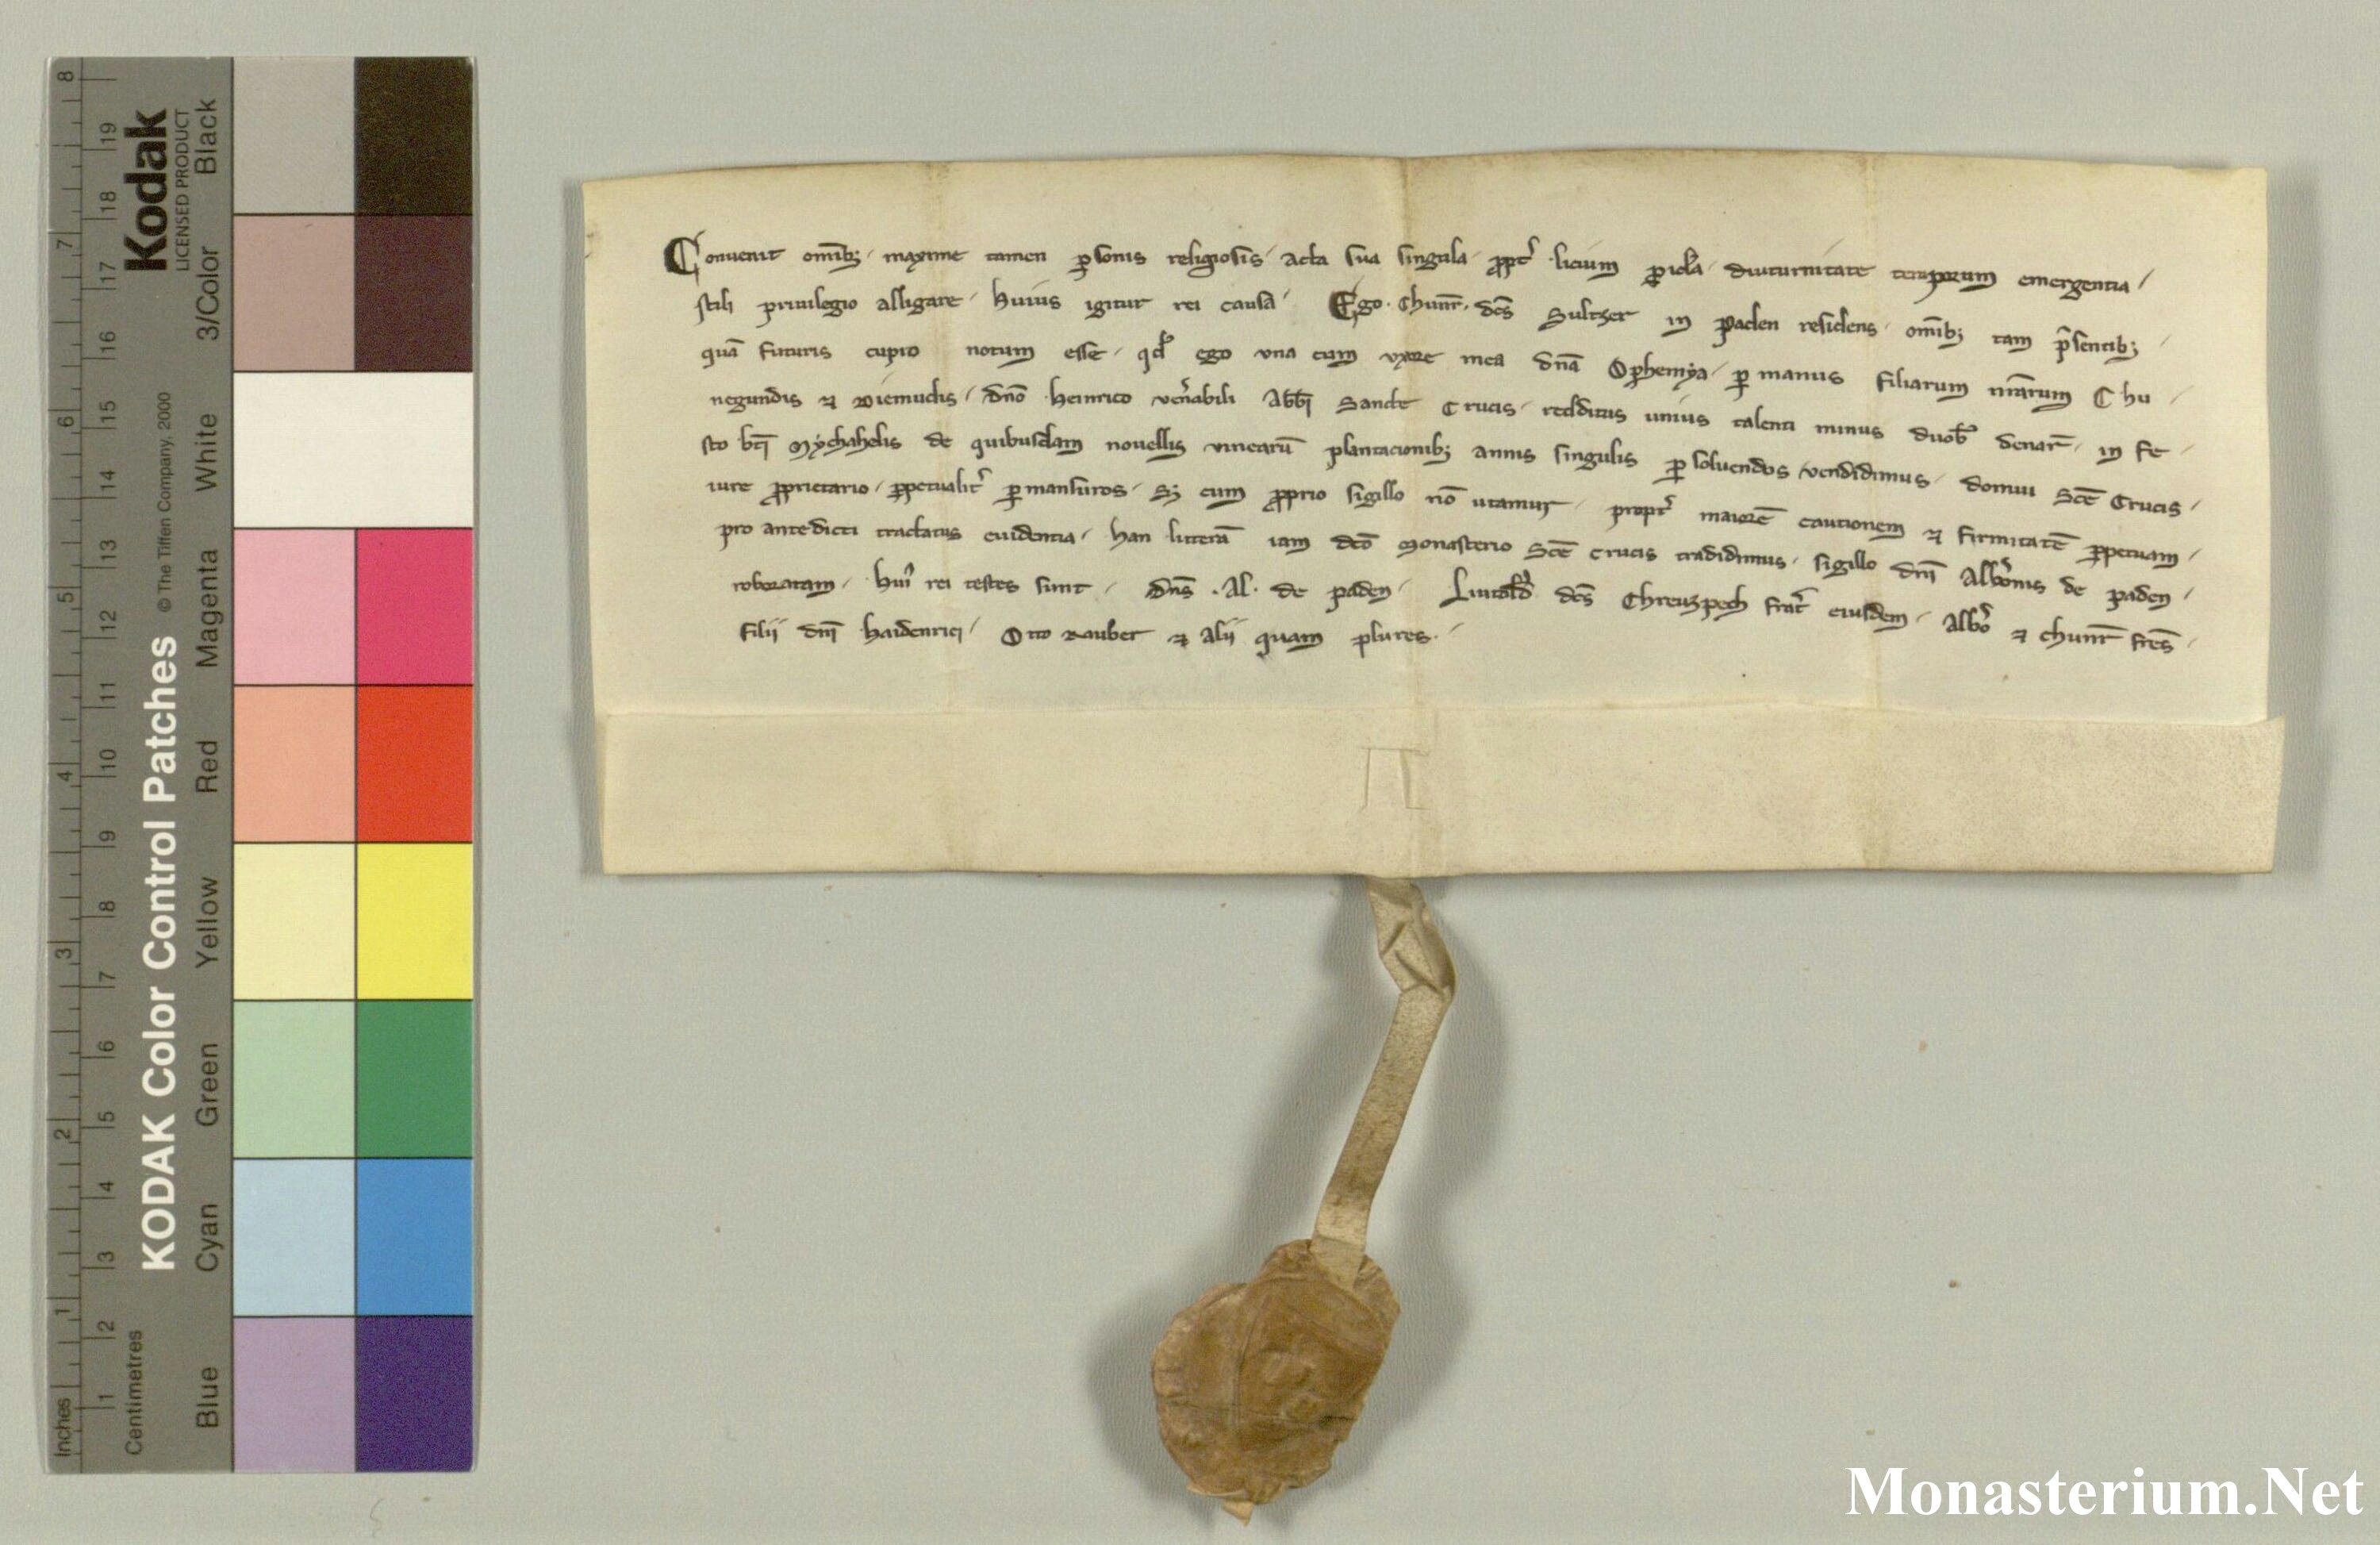 Conuenit om̄ib; maxime tamen ꝑsonis religiosis / acta sua singula ꝓpt̄ licium ꝑicl̄a diuturnitate temporum emergentia /
stili priuilegio alligare / huius igitur rei causa / Ego · Chunr̄ · dc̄s Sultzer in paden residens · om̄ib; tam p̄sentib; /
quā futuris cupio notum esse / qd̄ ego vna cum vxore mea dn̄a Ophemẏa / ꝑ manus filiarum nr̄arum Chu /
negundis ⁊ Diemudis / dn̄o heinrico ven̄abili Abb̄i Sancte Crucis / redditus unius talenti minus duob̄ denar̄ · in fe /
sto bt̄i Mẏchahelis de quibusdam nouellis vinearū plantacionib; annis singulis ꝑsoluendos / vendidimus · domui Sc̄e Crucis /
iure ꝓprietario / ꝑpetualit̄ ꝑmansuros / S; cum ꝓprio sigillo nō utamur / propt̄ maiorē cautionem ⁊ firmitatē ꝑpetuam /
pro antedicti tractatus euidentia / han litterā iam dc̄o Monasterio Sc̄e Crucis tradidimus · sigillo dn̄i Alb̄onis de paden /
roboratam / hui᷒ rei testes sunt / dn̄s · Al · de paden / Liutold̄ dc̄s Chreuzpech frat̄ eiusdem / Alb̄o ⁊ chunr̄ fr̄es /
filii dn̄i haidenrici / Otto Rauber ⁊ alii quam plures · /
KODAK Color Control Patches © The Tiffen Company, 2000
Kodak
LICENSED PRODUCT
Blue Cyan Green Yellow Red Magenta White 3/Color Black
Inches 1 2 3 4 5 6 7 8
Centimetres 1 2 3 4 5 6 7 8 9 10 11 12 13 14 15 16 17 18 19
Monasterium.Net